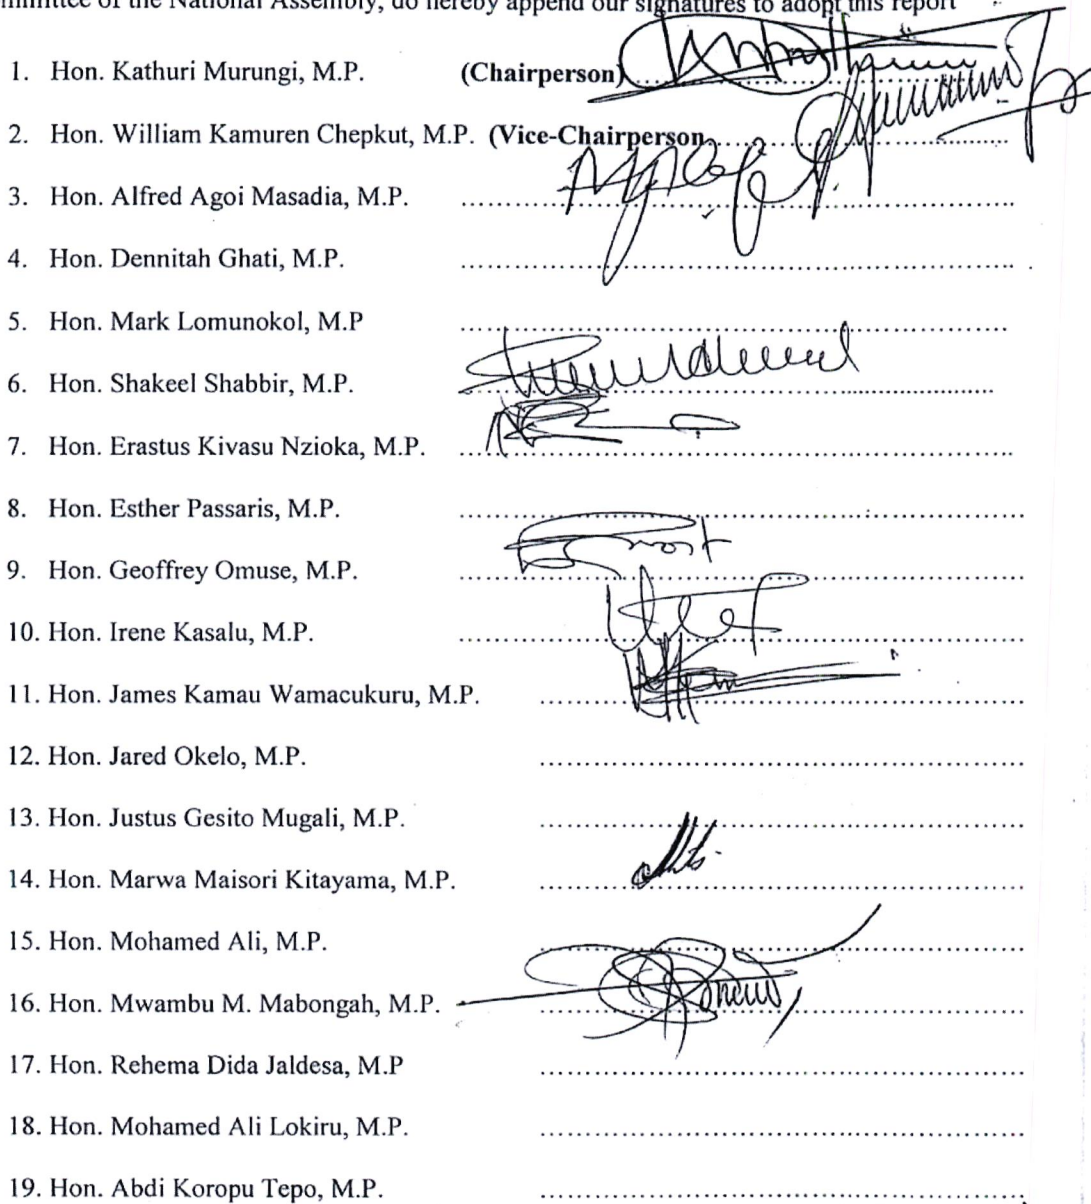 mmittee of the National Assembly, do hereby append our signatures to adopt this report
1. Hon. Kathuri Murungi, M.P. (Chairperson)
2. Hon. William Kamuren Chepkut, M.P. (Vice-Chairperson
3. Hon. Alfred Agoi Masadia, M.P.
4. Hon. Dennitah Ghati, M.P.
5. Hon. Mark Lomunokol, M.P
6. Hon. Shakeel Shabbir, M.P.
7. Hon. Erastus Kivasu Nzioka, M.P.
8. Hon. Esther Passaris, M.P.
9. Hon. Geoffrey Omuse, M.P.
10. Hon. Irene Kasalu, M.P.
11. Hon. James Kamau Wamacukuru, M.P.
12. Hon. Jared Okelo, M.P.
13. Hon. Justus Gesito Mugali, M.P.
14. Hon. Marwa Maisori Kitayama, M.P.
15. Hon. Mohamed Ali, M.P.
16. Hon. Mwambu M. Mabongah, M.P.
17. Hon. Rehema Dida Jaldesa, M.P
18. Hon. Mohamed Ali Lokiru, M.P.
19. Hon. Abdi Koropu Tepo, M.P.